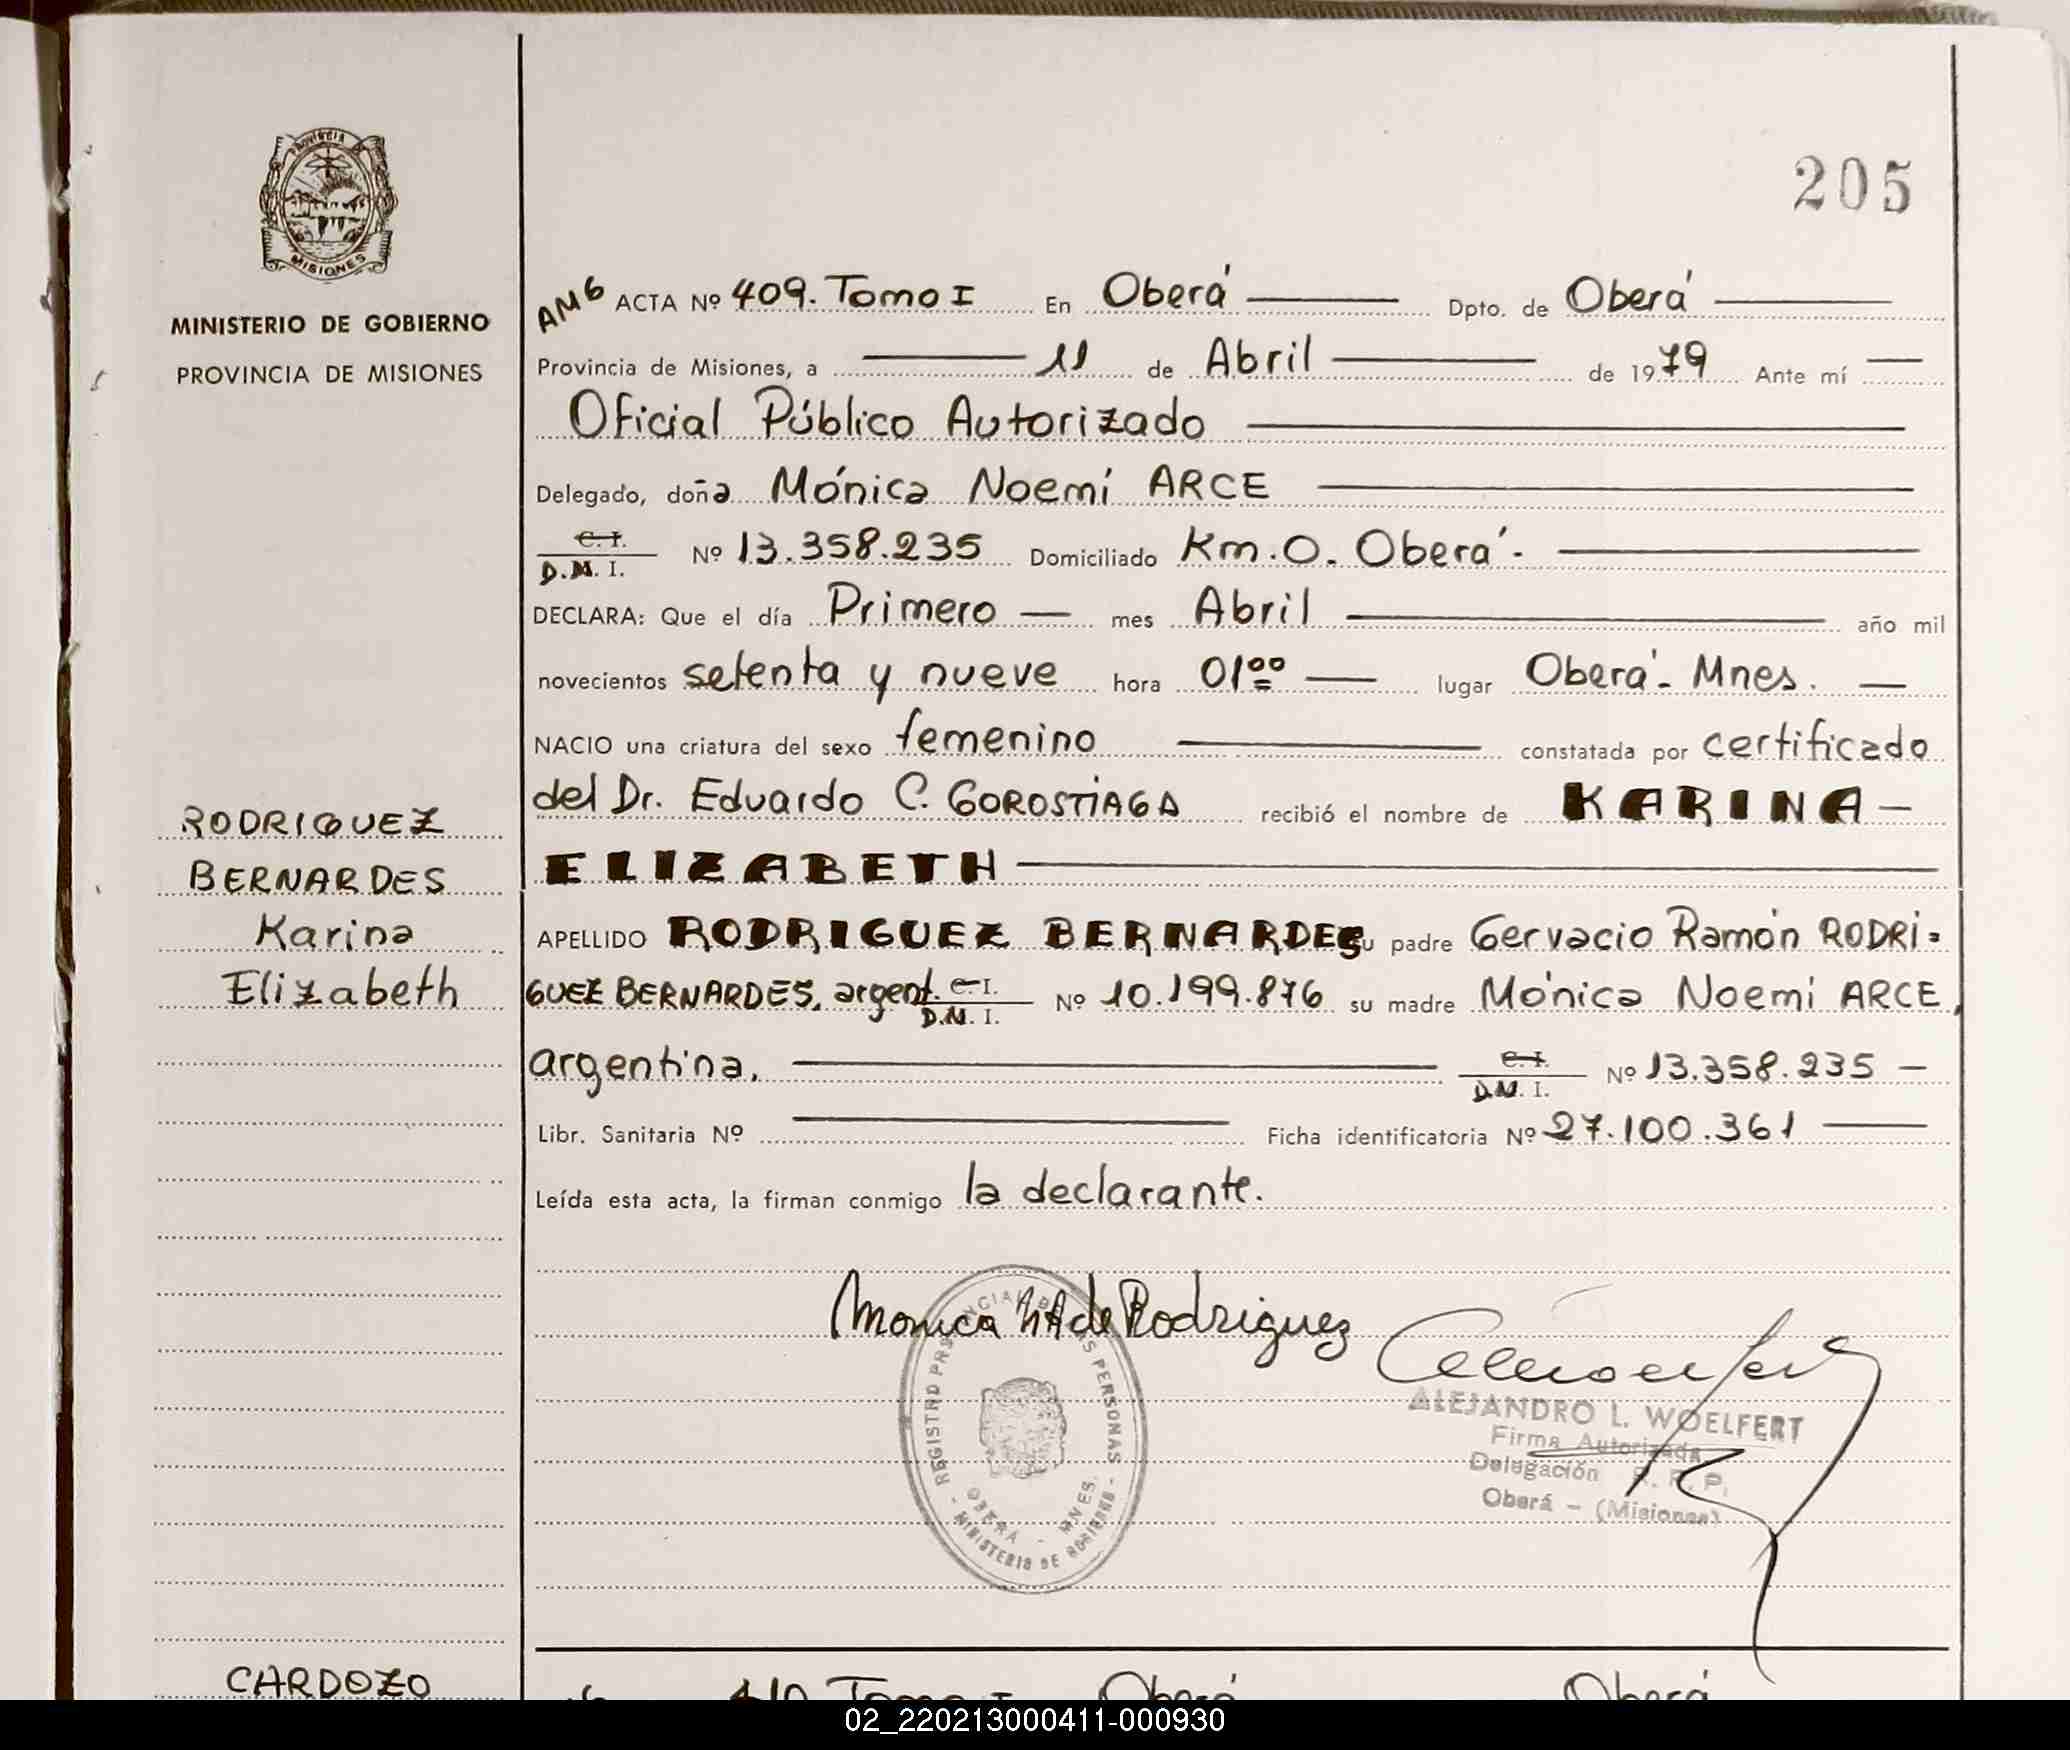 PROVINCIA DE
MISIONES
MINISTERIO DE GOBIERNO
PROVINCIA DE MISIONES
RODRIGUEZ
BERNARDES
Karina
Elizabeth
CARDOZO
205
AMG ACTA Nº 409. Tomo I En Oberá Dpto. de Oberá
Provincia de Misiones, a 11 de Abril de 1979 Ante mí
Oficial Público Autorizado
Delegado, doña Mónica Noemí ARCE
C. I.
D.N. I. Nº 13.358.235 Domiciliado Km. 0. Oberá.-
DECLARA: Que el día Primero mes Abril año mil
novecientos setenta y nueve hora 01°° lugar Oberá - Mnes.
NACIO una criatura del sexo femenino constatada por certificado
del Dr. Eduardo C. GOROSTIAGA recibió el nombre de KARINA
ELIZABETH
APELLIDO RODRIGUEZ BERNARDES su padre Gervacio Ramón RODRI-
GUEZ BERNARDES, argent. C. I.
D.N. I. Nº 10.199.876 su madre Mónica Noemí ARCE,
argentina. C. I.
D.N. I. Nº 13.358.235
Libr. Sanitaria Nº Ficha identificatoria Nº 27.100.361
Leída esta acta, la firman conmigo la declarante.
Monica NA de Rodriguez
REGISTRO PROVINCIAL DE LAS PERSONAS
OBERA - MNES.
- MINISTERIO DE GOBIERNO -
ALEJANDRO L. WOELFERT
Firma Autorizada
Delegación R. P. P.
Oberá - (Misiones)
410 Tomo I Oberá Oberá
02_220213000411-000930